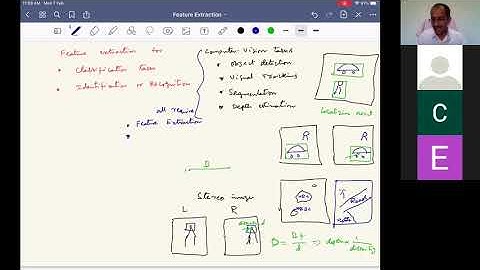 11:58 AM Wed 7 Feb
Feature Extraction
Feature extraction for
• Classification Tasks
• Identification or Recognition
Computer Vision tasks
• Object detection
• Visual Tracking
• Segmentation
• Depth estimation
all require
• Feature Extraction
•
Localization
R
R
D
Stereo image
L R
Road
d
D = ⇒ depth
C
E